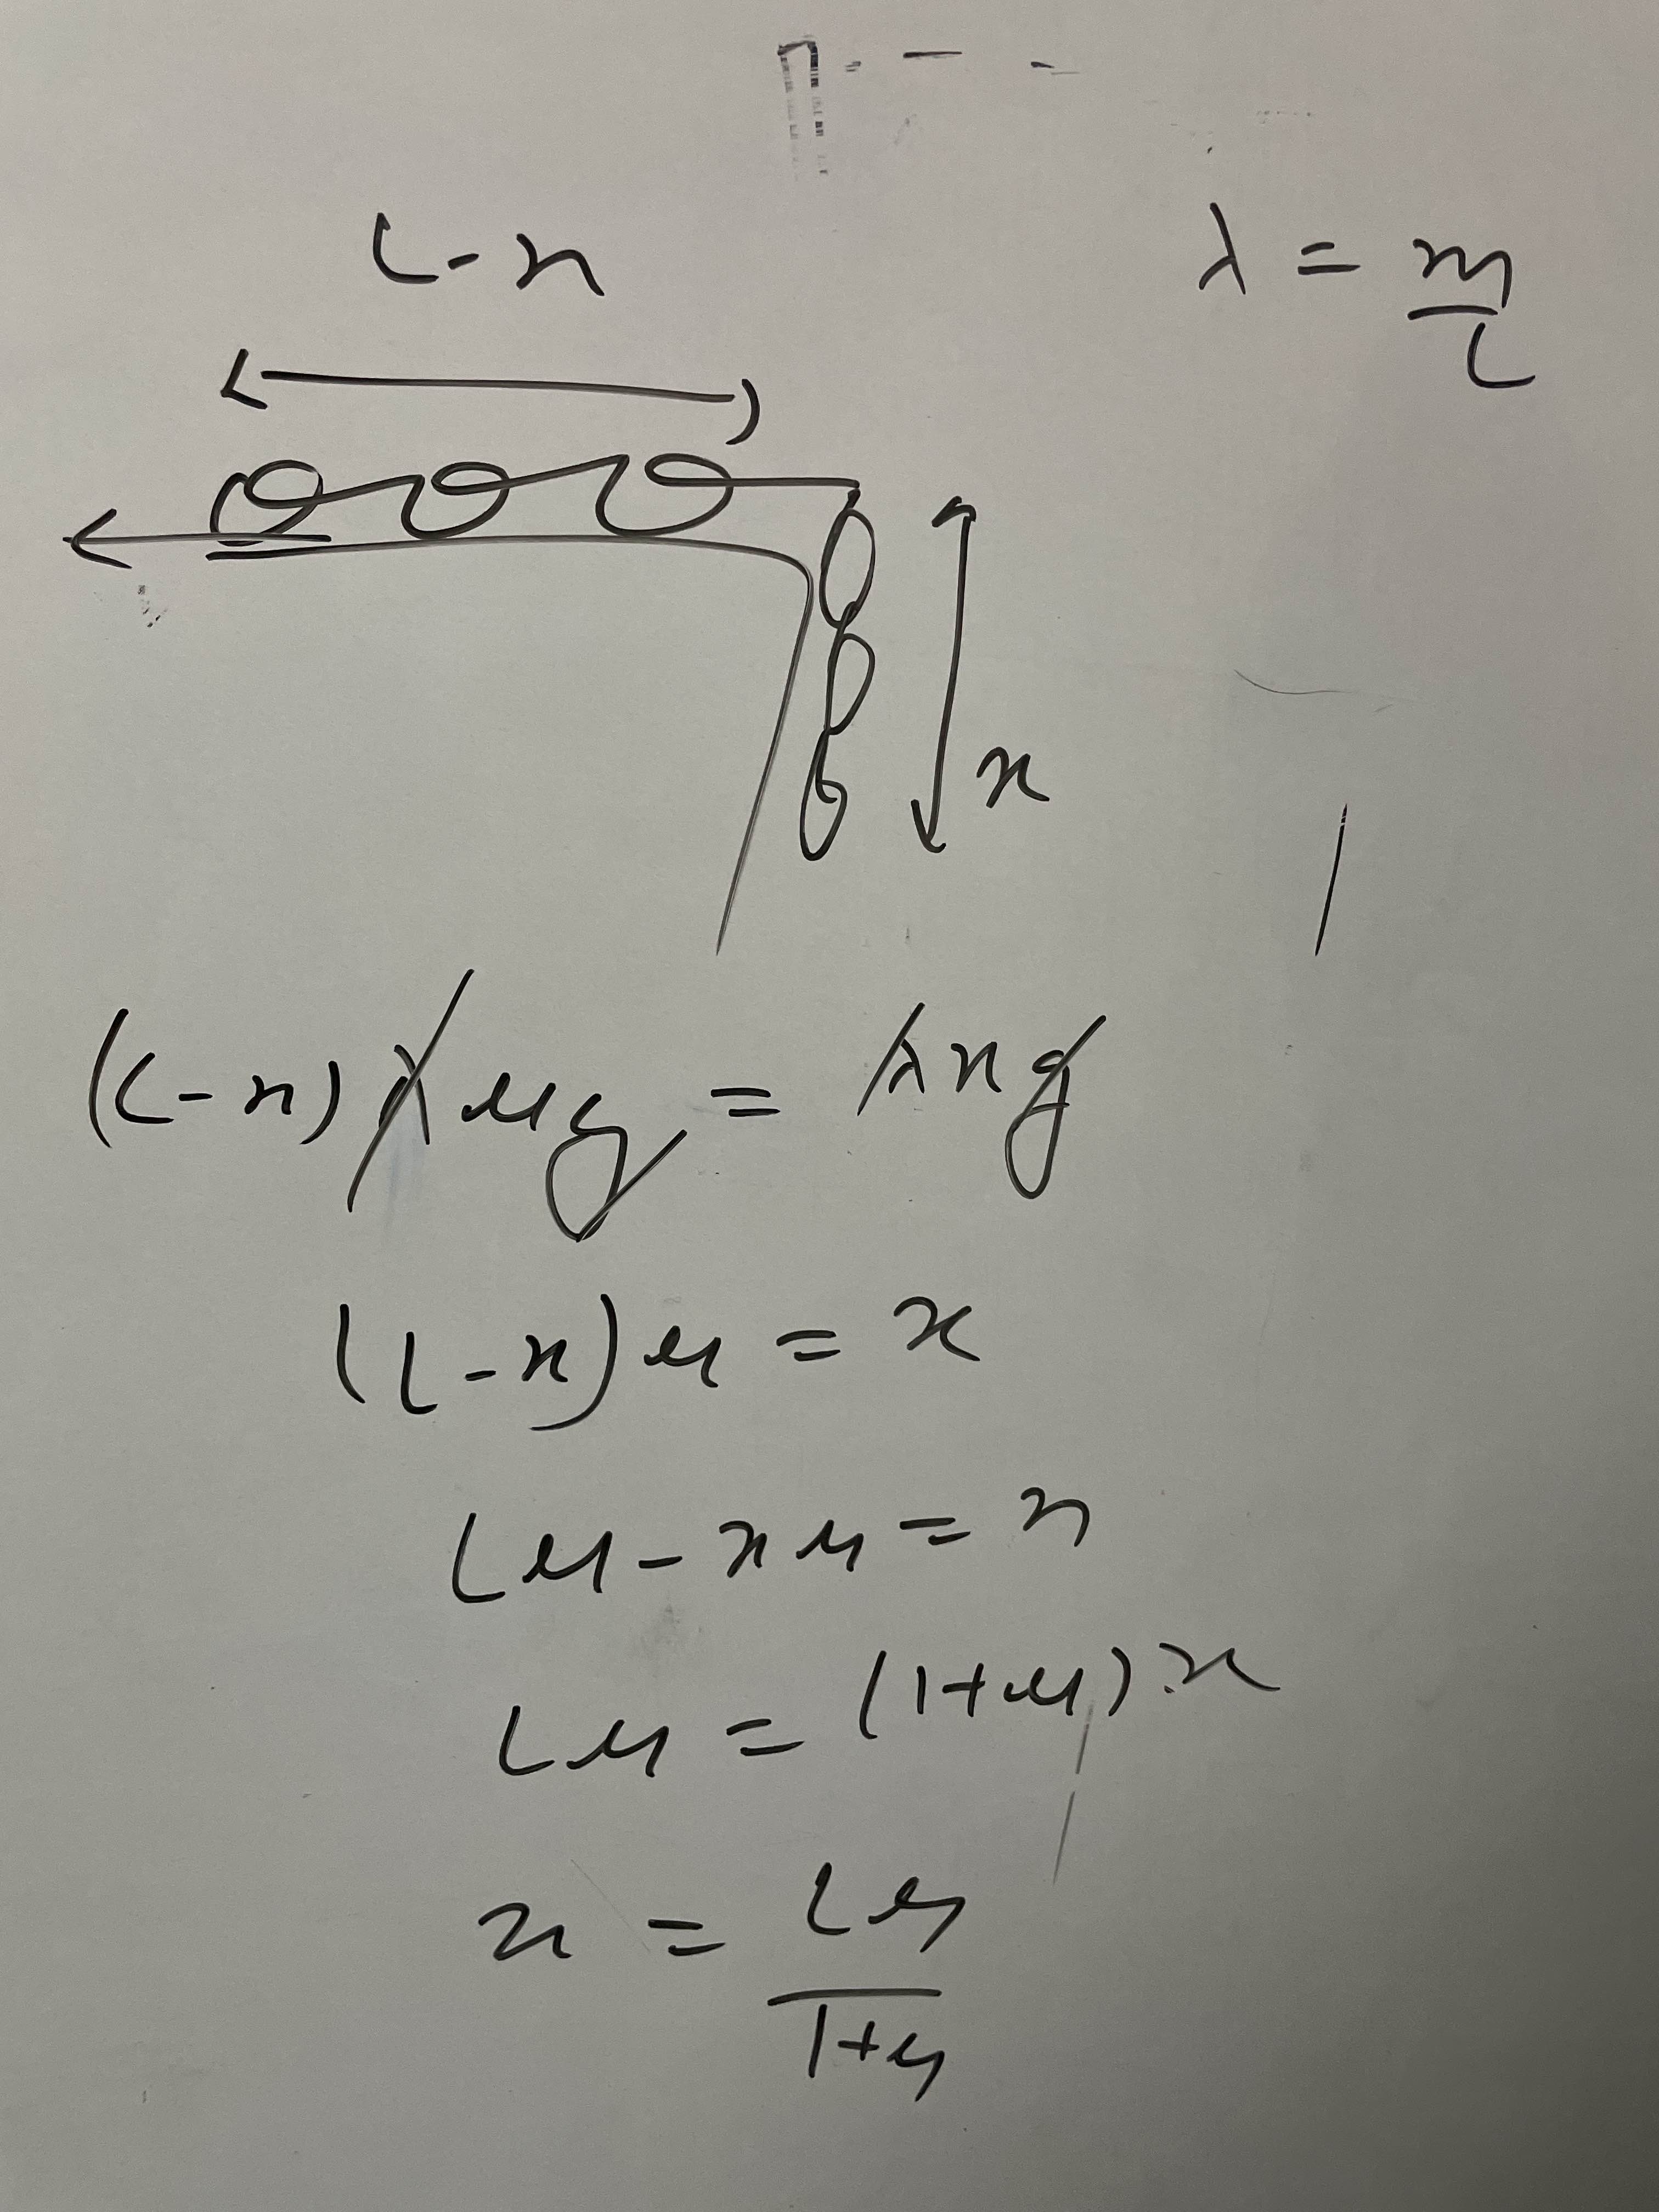 L-x
λ = m/L
x
(L-x) λ μg = λxg
(L-x) μ = x
Lμ - xμ = x
Lμ = (1+μ) x
x = Lμ/1+μ